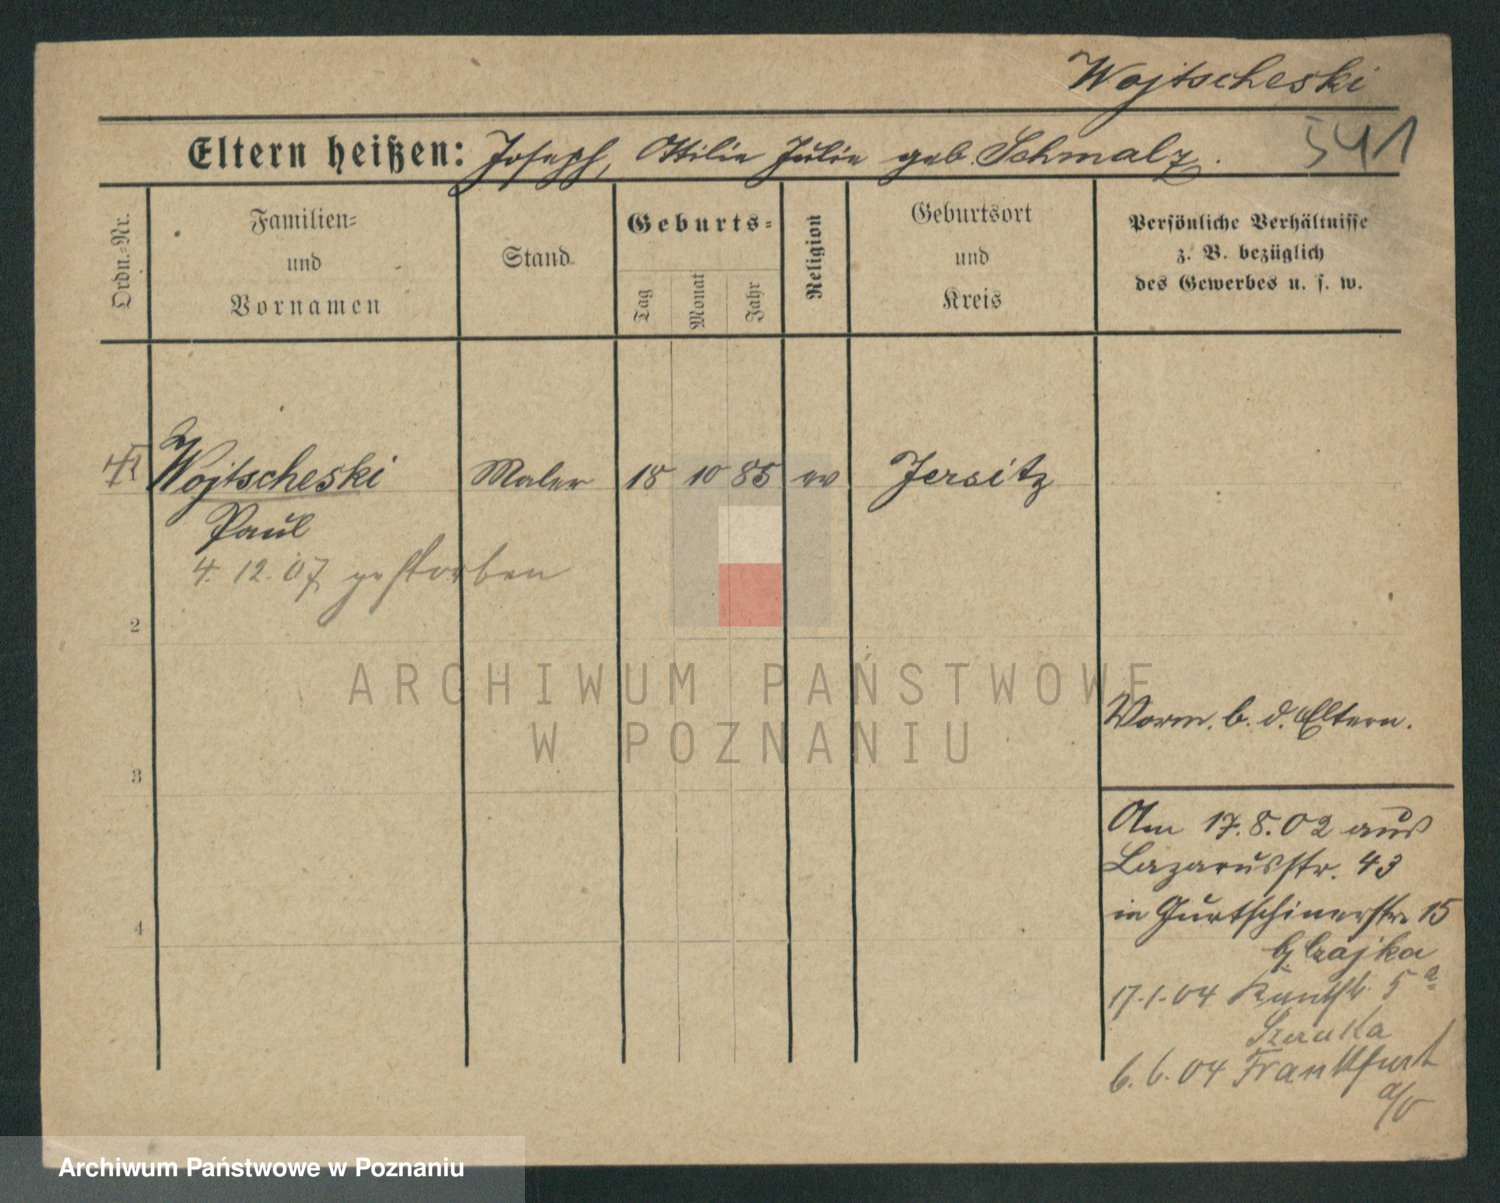 Wojtscheski
541
Eltern heißen: Joseph, Ottilie Julie geb. Schmalz.
Ordn.-Nr.
Familien-
und
Vornamen
Stand
Geburts-
Tag
Monat
Jahr
Religion
Geburtsort
und
Kreis
Persönliche Verhältnisse
z. B. bezüglich
des Gewerbes u. s. w.
Wojtscheski Maler 18 10 85 ev Jersitz
Paul
4. 12. 07 gestorben
2
ARCHIWUM PAŃSTWOWE
W POZNANIU
Vorm. b. d. Eltern.
3
Am 17.8.02 aus
Lazarusstr. 43
in Gurtschinerstr. 15
b/ Czajka
4
17.1.04 Kantstr. 5a
6.6.04 Frankfurt
a/O
Archiwum Państwowe w Poznaniu